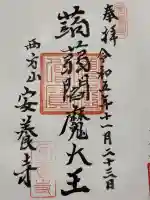 奉拝
令和五年十一月二十三日
蒟蒻閻魔大王
西方山
安養寺